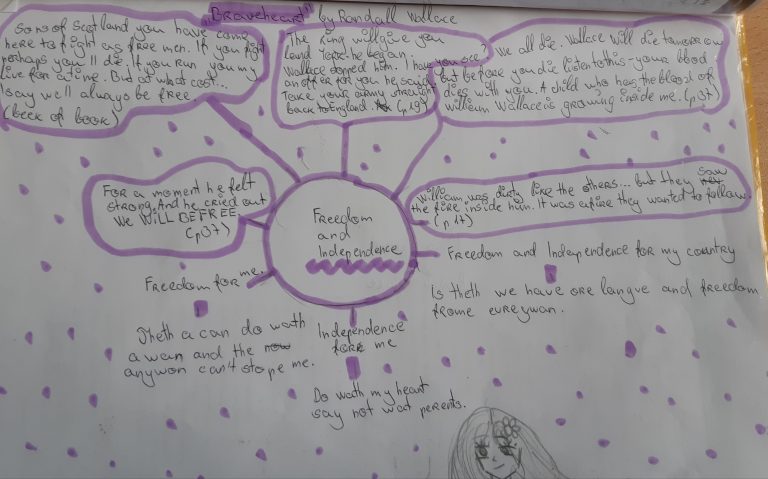 "Braveheart" by Randall Wallace
Sons of Scotland you have come
here to fight as free men. If you fight
perhaps you ll die. If you run you my
live for a time. But at what cost...
I say we'll always be free.
(beck of book)
The King will give you
Land York he began.
Wallace stopped him. I have you see?
an offer for you he said
Take your army straight
back to England. (p 19)
We all die. Wallace will die tomorrow
but before you die listen to this - your blood
dies with you. A child who has the blood of
William Wallace is growing inside me. (p 37)
For a moment he felt
strong. And he cried out
WE WILL BE FREE.
(p37)
William was dirty like the others... but they saw
the fire inside him. It was a fire they wanted to follow.
(p 17)
Freedom
and
Independence
Freedom for me.
Theth a can do wath
a wan and the now
anywon can't stope me.
Independence
fore me
Do wath my heart
say not wat perents.
Freedom and Independence for my country
Is theth we have ore langue and freedom
frome eureywan.